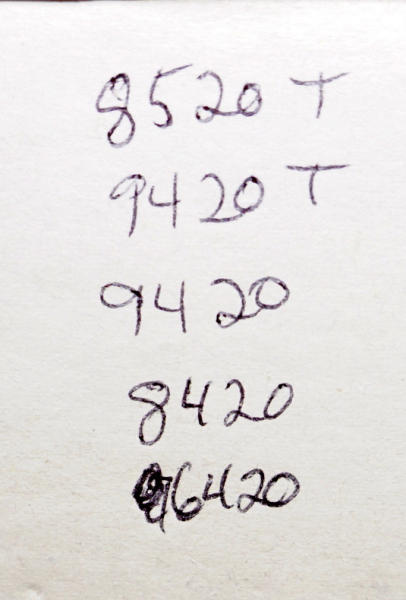 8520 T
9420 T
9420
8420
6420